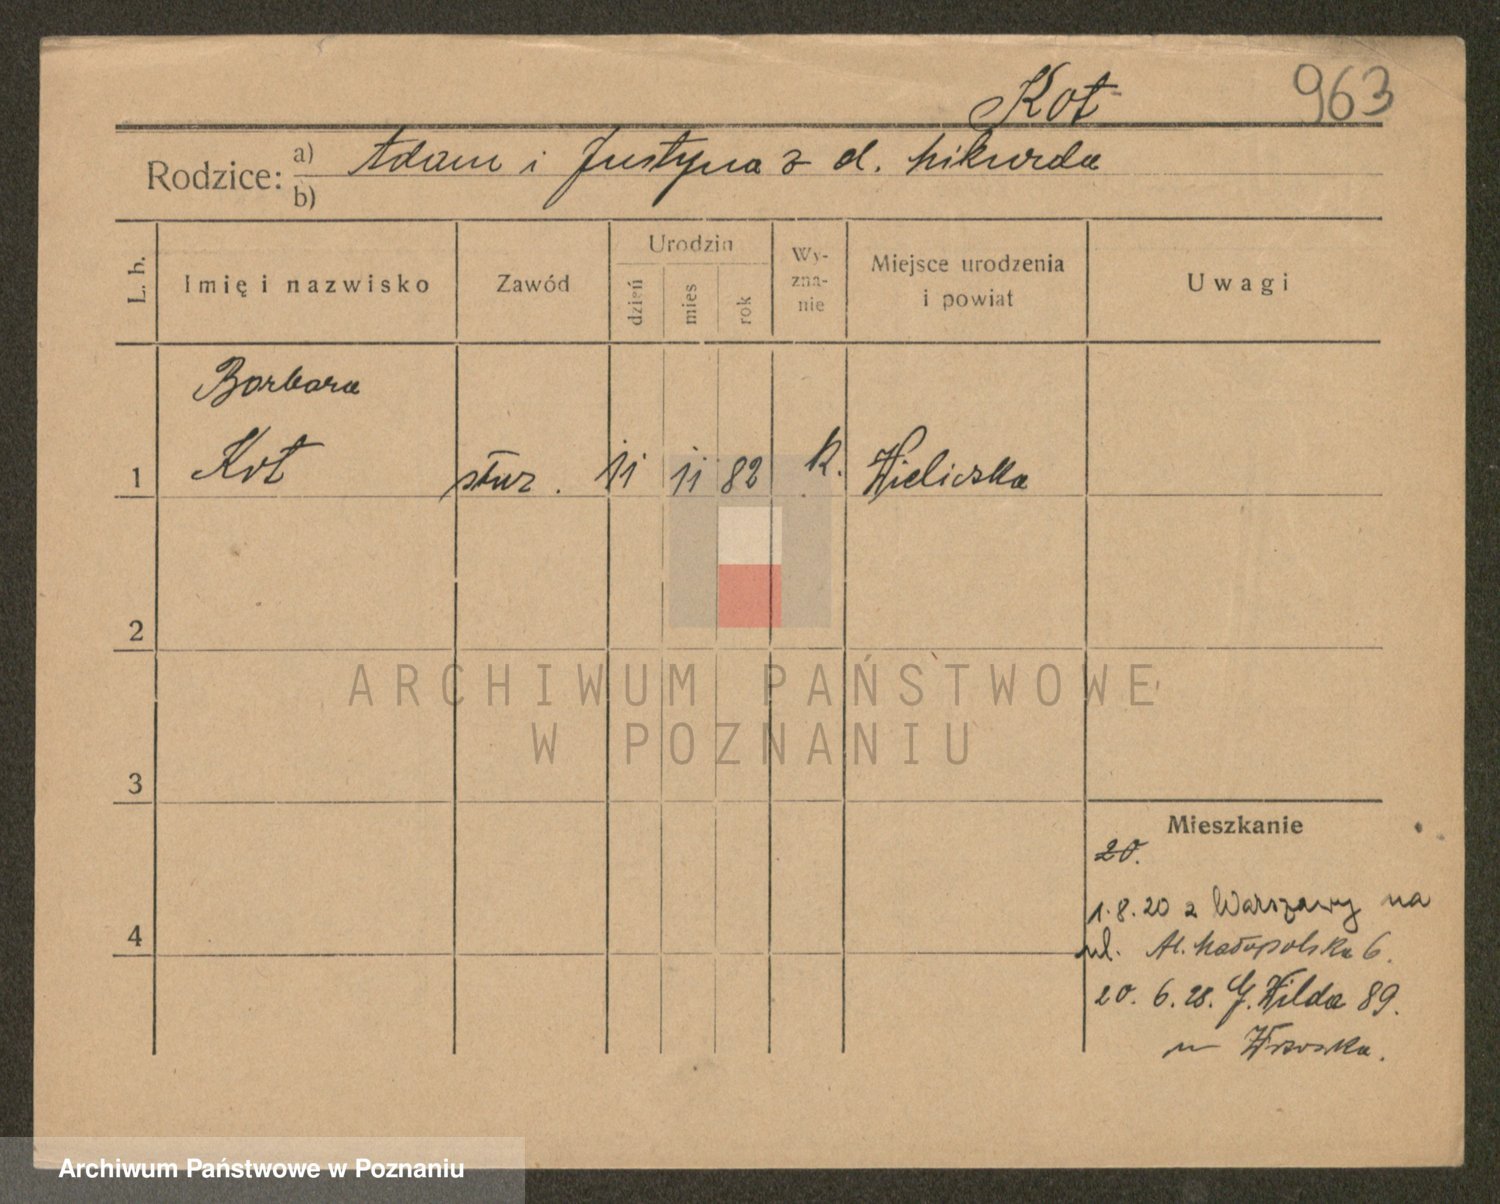 Kot
963
Rodzice: a) Adam i Justyna z d. Nikurda
b)
L. b.
Imię i nazwisko
Zawód
Urodzin
dzień
mies
rok
Wy-
zna-
nie
Miejsce urodzenia
i powiat
Uwagi
Barbara
1 Kot służ. 11 11 82 k. Wieliczka
2
ARCHIWUM PAŃSTWOWE
W POZNANIU
3
Mieszkanie
20.
4
1.8.20 z Warszawy na
ul. Al. Małopolska 6.
20. 6. 28. G. Wilda 89.
u Wrzoska.
Archiwum Państwowe w Poznaniu